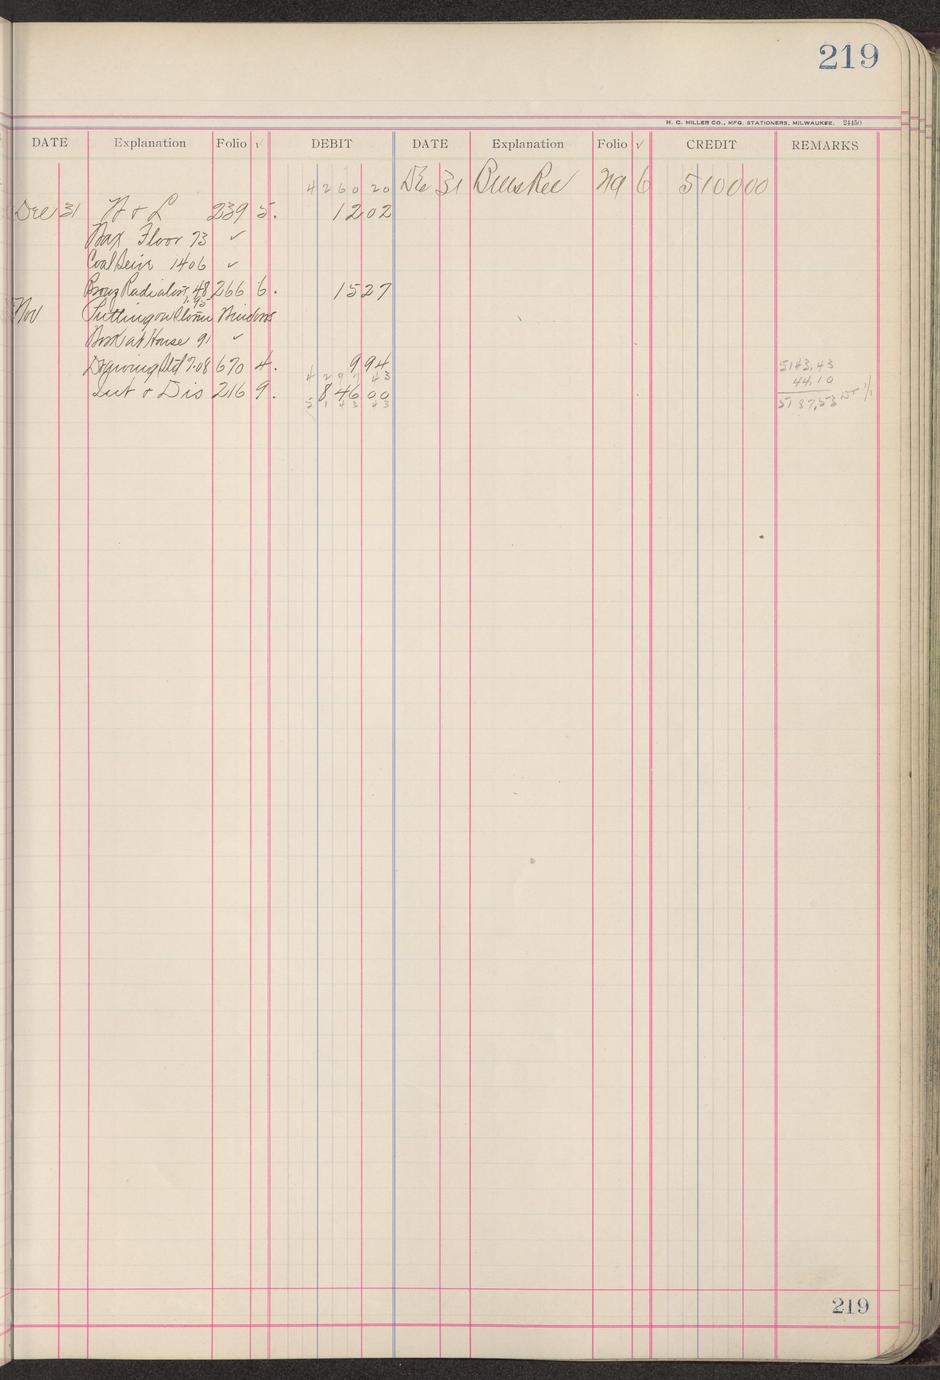 219
H. C. MILLER CO., MFG. STATIONERS, MILWAUKEE. 24450
DATE Explanation Folio √ DEBIT DATE Explanation Folio √ CREDIT REMARKS
4260 20 Dec 31 Bills Rec 219 6 5100 00
Dec 31 N & L 239 5. 12 02
Wax Floor 73 ✓
Coal 1406 ✓
Radiators 48 266 6. 15 27
1.95
Nov Putting on Storm Windows
Work at House 91 ✓
7.08 670 4. 9 94 5143.43
4297 43 44.10
Int & Dis 216 9. 846 00 5187.53 1/1
5143 43
219